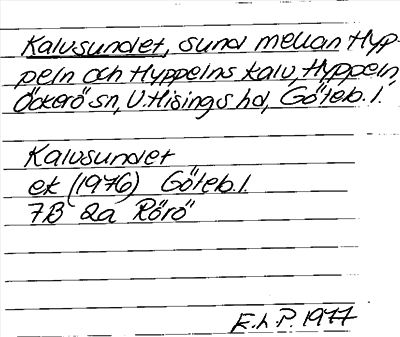 Kalvsundet, sund mellan Hyp-
peln och Hyppelns kalv, Hyppeln,
Öckerö sn, V. Hisings hd, Göteb. l.
Kalvsundet
ek (1976) Göteb. l.
7B 2a Rörö
E.h.P. 1977